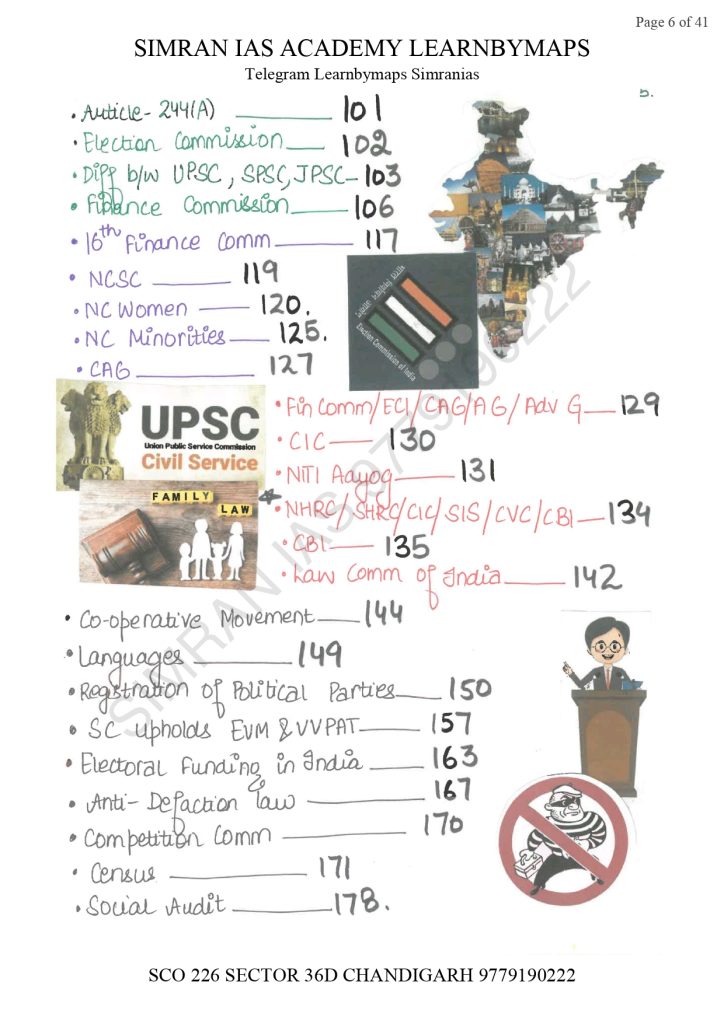 Page 6 of 41
SIMRAN IAS ACADEMY LEARNBYMAPS
Telegram Learnbymaps Simranias
5.
• Article - 244(A) ______ 101
• Election Commission ___ 102
• Diff b/w UPSC, SPSC, JPSC - 103
• Finance Commission ___ 106
• 16th Finance Comm ______ 117
• NCSC ______ 119
• NC Women ___ 120.
• NC Minorities ___ 125.
• CAG ______ 127
Election Commission of India
UPSC
Union Public Service Commission
Civil Service
FAMILY
LAW
• Fin Comm/ECI/CAG/AG/Adv G ___ 129
• CIC ___ 130
• NITI Aayog ______ 131
• NHRC/SHRC/CIC/SIS/CVC/CBI — 134
• CBI ___ 135
• Law Comm of India ______ 142
• Co-operative Movement ___ 144
• Languages ______ 149
• Registration of Political Parties ___ 150
• SC upholds EVM & VVPAT ___ 157
• Electoral Funding in India ___ 163
• Anti-Defaction law ______ 167
• Competition Comm ______ 170
• Census ______ 171
• Social Audit ______ 178.
SIMRAN IAS 9779190222
SCO 226 SECTOR 36D CHANDIGARH 9779190222